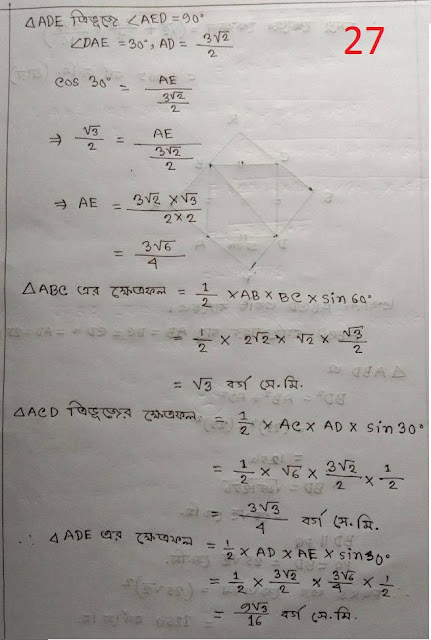 △ADE ত্রিভুজে ∠AED = 90°
∠DAE = 30°, AD = 3√2/2
27
cos 30° = AE/(3√2/2)
⇒ √3/2 = AE/(3√2/2)
⇒ AE = (3√2 × √3)/(2×2)
= 3√6/4
△ABC এর ক্ষেত্রফল = 1/2 × AB × BC × sin 60°
= 1/2 × 2√2 × √2 × √3/2
= √3 বর্গ সে.মি.
△ACD ত্রিভুজের ক্ষেত্রফল = 1/2 × AC × AD × sin 30°
= 1/2 × √6 × 3√2/2 × 1/2
= 3√3/4 বর্গ সে.মি.
∴ △ADE এর ক্ষেত্রফল = 1/2 × AD × AE × sin 30°
= 1/2 × 3√2/2 × 3√6/4 × 1/2
= 9√3/16 বর্গ সে.মি.